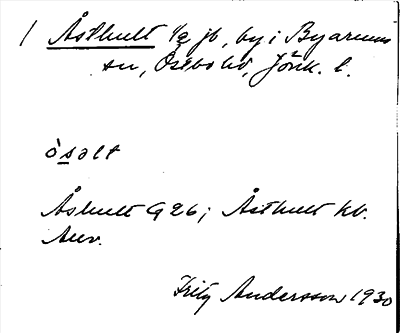 / Åsthult 1/2 jb, by i Byarums
sn, Östbo hd, Jönk. l.
òsəlt
Åshult G 26; Åsthult kb.
Anv.
Fritz Andersson 1930